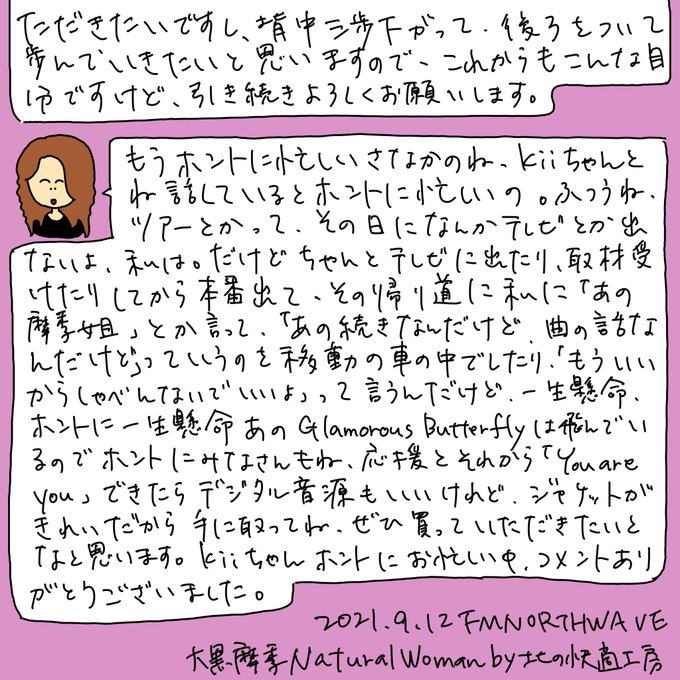 ただきたいですし、背中三歩下がって、後ろをついて
歩んでいきたいと思いますので、これからもこんな自
分ですけど、引き続きよろしくお願いします。
もうホントに忙しいさなかのね、kiiちゃんと
ね話しているとホントに忙しいの。ふつうね、
ツアーとかって、その日になんかテレビとか出
ないよ、私は。だけどちゃんとテレビに出たり、取材受
けたりしてから本番出て、その帰り道に私に「あの
摩季姐」とか言って、「あの続きなんだけど、曲の話な
んだけど」っていうのを移動の車の中でしたり、「もういい
からしゃべんないでいいよ」って言うんだけど、一生懸命、
ホントに一生懸命あのGlamorous Butterflyは飛んでい
るのでホントにみなさんもね、応援とそれから「You are
you」できたらデジタル音源もいいけれど、ジャケットが
きれいだから手に取ってね、ぜひ買っていただきたいと
なと思います。kiiちゃんホントにお忙しい中、コメントあり
がとうございました。
2021.9.12 FMNORTHWAVE
大黒摩季Natural Woman by 北の快適工房